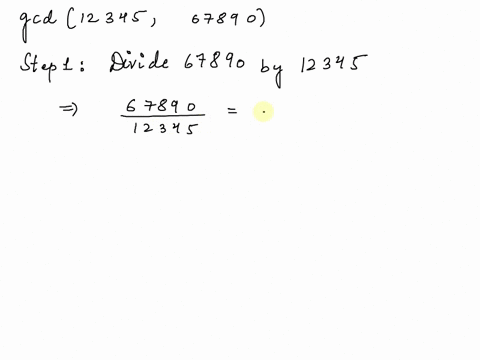 gcd (12345, 67890)
Step 1: Divide 67890 by 12345
⇒ 67890/12345 =